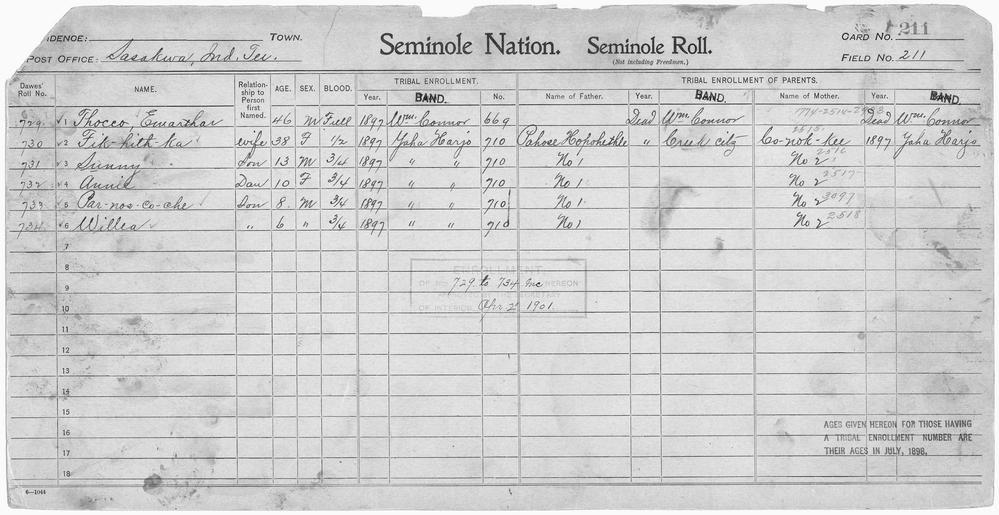 IDENCE: TOWN. Seminole Nation. Seminole Roll. CARD NO. 211
POST OFFICE: Sasakwa, Ind. Ter. (Not including Freedmen.) FIELD NO. 211
Dawes' Roll No. NAME. Relationship to Person first Named. AGE. SEX. BLOOD. TRIBAL ENROLLMENT. TRIBAL ENROLLMENT OF PARENTS.
Year. BAND. No. Name of Father. Year. BAND. Name of Mother. Year. BAND.
729 1 Thocco Emarthar 46 M Full 1897 Wm. Connor 669 Dead Wm Connor Dead Wm. Connor
730 2 Fik-hith-ka wife 38 F 1/2 1897 Yaha Harjo 710 Pahose Hopohithle " Creek City Co-nok-kee 1897 Yaha Harjo
731 3 Sunny Son 13 M 3/4 1897 " " 710 No 1 No 2 2516
732 4 Annie Dau 10 F 3/4 1897 " " 710 No 1 No 2 2517
733 5 Par-nos-co-che Son 8 M 3/4 1897 " " 710 No 1 No 2 3097
734 6 Willea " 6 " 3/4 1897 " " 710 No 1 No 2 2518
7
8
ENROLLMENT
9 OF NOS 729 to 734 Inc HEREON
APPROVED BY THE SECRETARY
10 OF INTERIOR Apr 2 1901.
11
12
13
14
15
16
17
18
AGES GIVEN HEREON FOR THOSE HAVING
A TRIBAL ENROLLMENT NUMBER ARE
THEIR AGES IN JULY, 1898.
6—1044